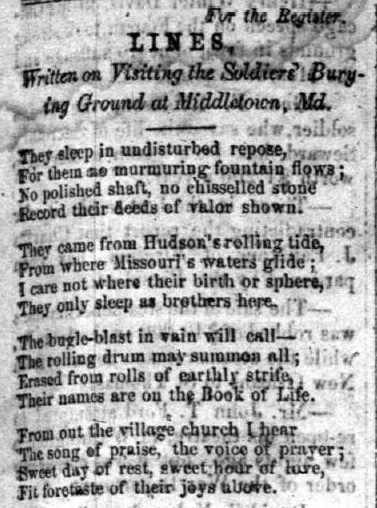 For the Register.
LINES,
Written on Visiting the Soldiers' Bury-
ing Ground at Middletown, Md.
They sleep in undisturbed repose,
For them no murmuring fountain flows;
No polished shaft, no chisselled stone
Record their deeds of valor shown.
They came from Hudson's rolling tide,
From where Missouri's waters glide;
I care not where their birth or sphere,
They only sleep as brothers here.
The bugle-blast in vain will call—
The rolling drum may summon all;
Erased from rolls of earthly strife,
Their names are on the Book of Life.
From out the village church I hear
The song of praise, the voice of prayer;
Sweet day of rest, sweet hour of love,
Fit foretaste of their joys above.